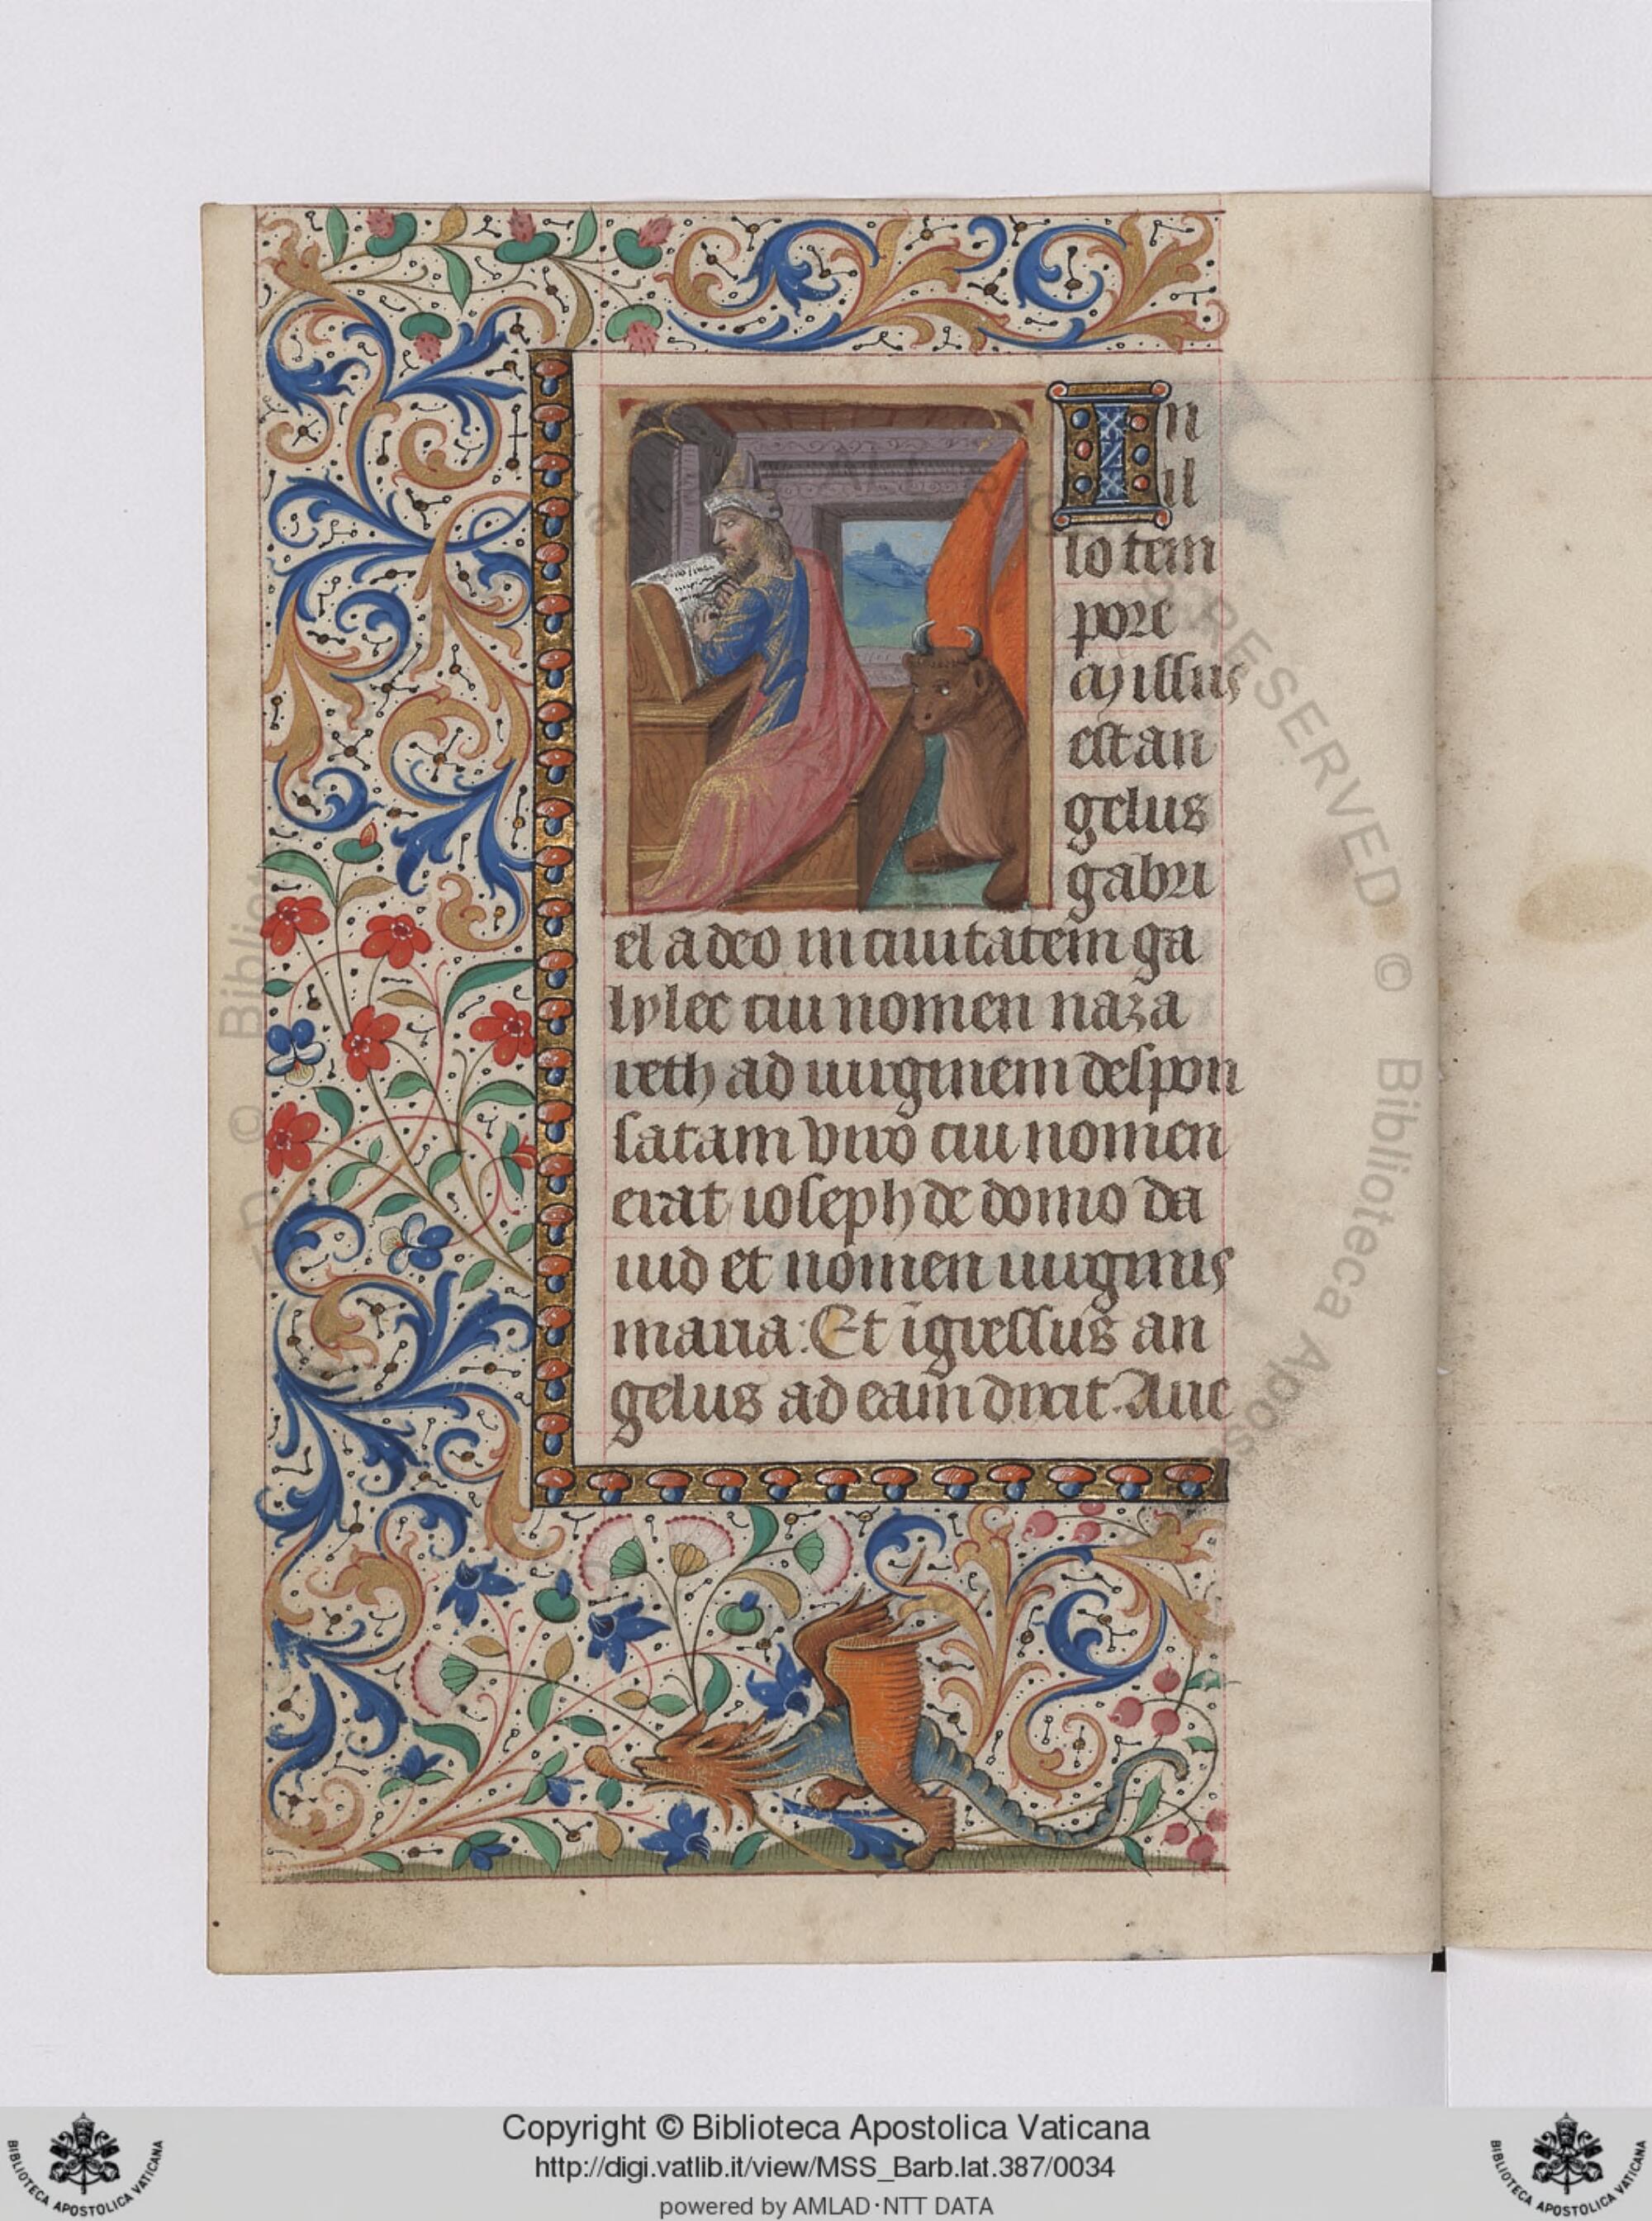 In
il
lo tem
pore
Missus
est an
gelus
gabri
el a deo in ciuitatem ga
lylee cui nomen naza
reth ad uirginem despon
satam viro cui nomen
erat ioseph de domo da
uid et nomen uirginis
maria: Et īgressus an
gelus ad eam dixit. Aue
RESERVED © Biblioteca Apos
© Bibliot
Copyright © Biblioteca Apostolica Vaticana
http://digi.vatlib.it/view/MSS_Barb.lat.387/0034
powered by AMLAD·NTT DATA
BIBLIOTECA APOSTOLICA VATICANA
BIBLIOTECA APOSTOLICA VATICANA